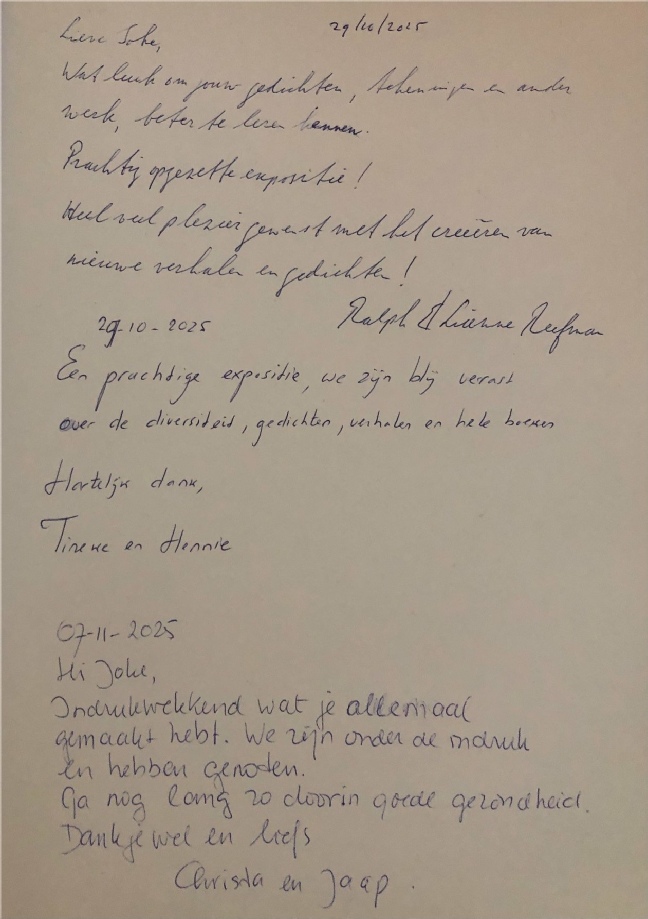 29/10/2025
Lieve Joke,
Wat leuk om jouw gedichten, tekeningen en ander
werk, beter te leren kennen.
Prachtig opgezette expositie!
Heel veel plezier gewenst met het creëren van
nieuwe verhalen en gedichten!
Ralph & Lianne
29-10-2025
Een prachtige expositie, we zijn blij verrast
over de diversiteit, gedichten, verhalen en hele boeken
Hartelijk dank,
Tineke en Hennie
07-11-2025
Hi Joke,
Indrukwekkend wat je allemaal
gemaakt hebt. We zijn onder de indruk
en hebben genoten.
Ga nog lang zo door in goede gezondheid.
Dankjewel en liefs
Christa en Jaap.